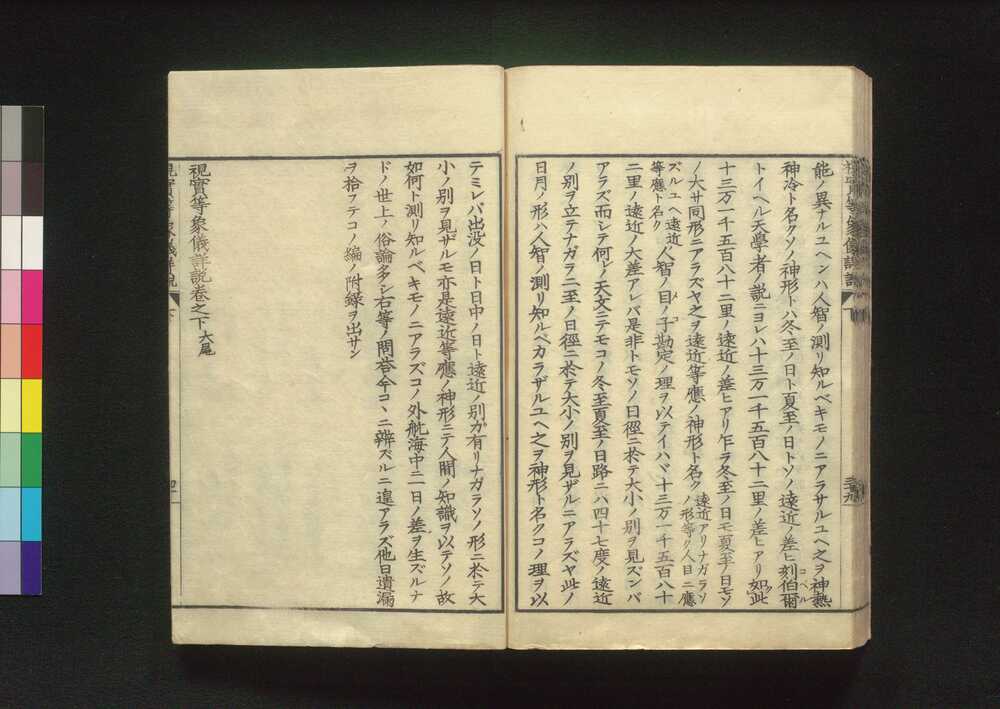 能ノ異ナルユヘンハ人智ノ測リ知ルベキモノニアラサルユヘ之ヲ神熱
神冷ト名クソノ神形トハ冬至ノ日ト夏至ノ日トソノ遠近ノ差ヒ刻伯爾
コペル
トイヘル天學者ノ説ニヨレハ十三万一千五百八十二里ノ差ヒアリ如此
十三万一千五百八十二里ノ遠近ノ差ヒアリ乍ラ冬至ノ日モ夏至ノ日モソ
ノ大サ同形ニアラズヤ之ヲ遠近等應ノ神形ト名ク
遠近アリナガラソ
ノ形等ク人目ニ應
ズルユヘ遠近
等應ト名ク
人智ノ目ノ子勘定ノ理ヲ以テイハヾ十三万一千五百八十
二里ノ遠近ノ大差アレバ是非トモソノ日徑ニ於テ大小ノ別ヲ見ズンバ
アラズ而シテ何レノ天文ニテモコノ冬至夏至ノ日路ニハ四十七度ノ遠近
ノ別ヲ立テナガラ二至ノ日徑ニ於テ大小ノ別ヲ見ザルニアラズヤ此ノ
日月ノ形ハ人智ノ測リ知ルベカラザルユヘ之ヲ神形ト名クコノ理ヲ以
テミレバ出没ノ日ト日中ノ日ト遠近ノ別ガ有リナガラソノ形ニ於テ大
小ノ別ヲ見ザルモ亦是遠近等應ノ神形ニテ人間ノ知識ヲ以テソノ故
如何ト測リ知ルベキモノニアラズコノ外航海中ニ一日ノ差ヲ生ズルナ
ドノ世上ノ俗論多シ右等ノ問荅今コヽニ辨ズルニ遑アラズ他日遺漏
ヲ拾フテコノ編ノ附録ヲ出サン
視實等象儀詳説卷之下大尾